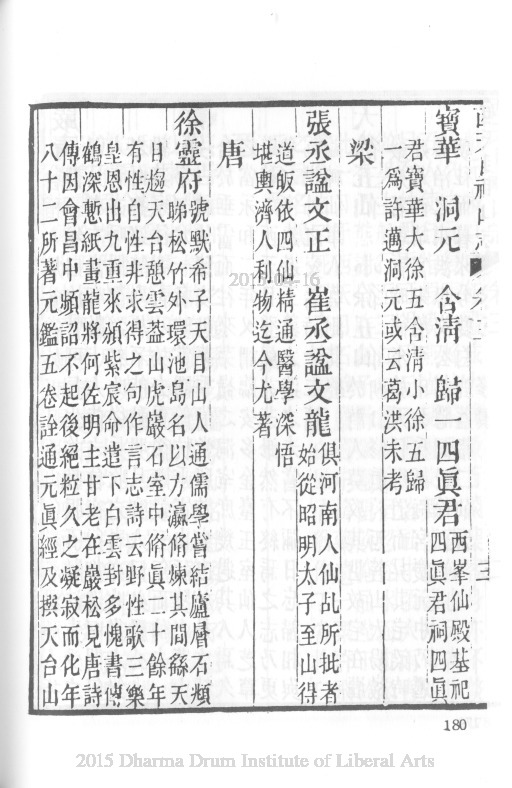 寶華 洞元 含清 歸一 四眞君 西峯仙殿基祀
四眞君祠四眞
君寶華大徐五含清小徐五歸
一爲許邁洞元或云葛洪未考
梁
張丞諡文正 崔丞諡文龍 俱河南人仙乩所批者
始從昭明太子至山得
道皈依四仙精通醫學深悟
堪輿濟人利物迄今尤著
唐
徐靈府 號默希子天目山人通儒學嘗結廬層石瀕
聯松竹外環池島名以方瀛脩煉其間繇天
日趨天台憩雲葢山虎巖石室中脩眞二十餘年
有性自性非求得之句作言志詩云野性歌三樂
皇恩出九重來頒紫宸命遣下白雲封多愧書傳
鶴深慙紙畫龍將何佐明主甘老在巖松見唐詩
傳因會昌中頻詔不起後絕粒久之凝寂而化年
八十二所著元鑑五卷詮通元眞經及撰天台山
三
180
2015-04-16
2015 Dharma Drum Institute of Liberal Arts